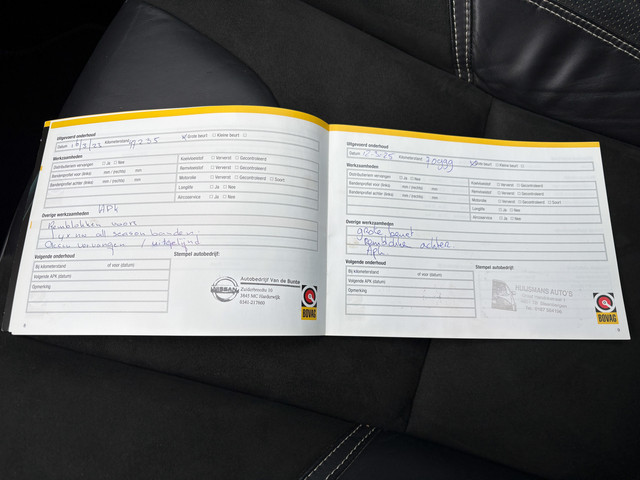 Uitgevoerd onderhoud
Datum Kilometerstand Grote beurt Kleine beurt
Werkzaamheden
Distributieriem vervangen Ja Nee
Bandenprofiel voor (links) mm / (rechts) mm
Bandenprofiel achter (links) mm / (rechts) mm
Koelvloeistof Ververst Gecontroleerd
Remvloeistof Ververst Gecontroleerd
Motorolie Ververst Gecontroleerd Soort
Longlife Ja Nee
Aircoservice Ja Nee
APK
Overige werkzaamheden
Remblokken voor
4 x nw all season banden
vervangen / uitgelijnd
Volgende onderhoud
Bij kilometerstand of voor (datum)
Volgende APK (datum)
Opmerking
Stempel autobedrijf:
NISSAN
Autobedrijf Van de Bunte
Zuiderbreedte 10
3845 MC Harderwijk
BOVAG
8
Uitgevoerd onderhoud
Datum Kilometerstand Grote beurt Kleine beurt
Werkzaamheden
Distributieriem vervangen Ja Nee
Bandenprofiel voor (links) mm / (rechts) mm
Bandenprofiel achter (links) mm / (rechts) mm
Koelvloeistof Ververst Gecontroleerd
Remvloeistof Ververst Gecontroleerd
Motorolie Ververst Gecontroleerd Soort
Longlife Ja Nee
Aircoservice Ja Nee
Overige werkzaamheden
grote beurt
achter
APK
Volgende onderhoud
Bij kilometerstand of voor (datum)
Volgende APK (datum)
Opmerking
Stempel autobedrijf:
HUIJSMANS AUTO'S
BOVAG